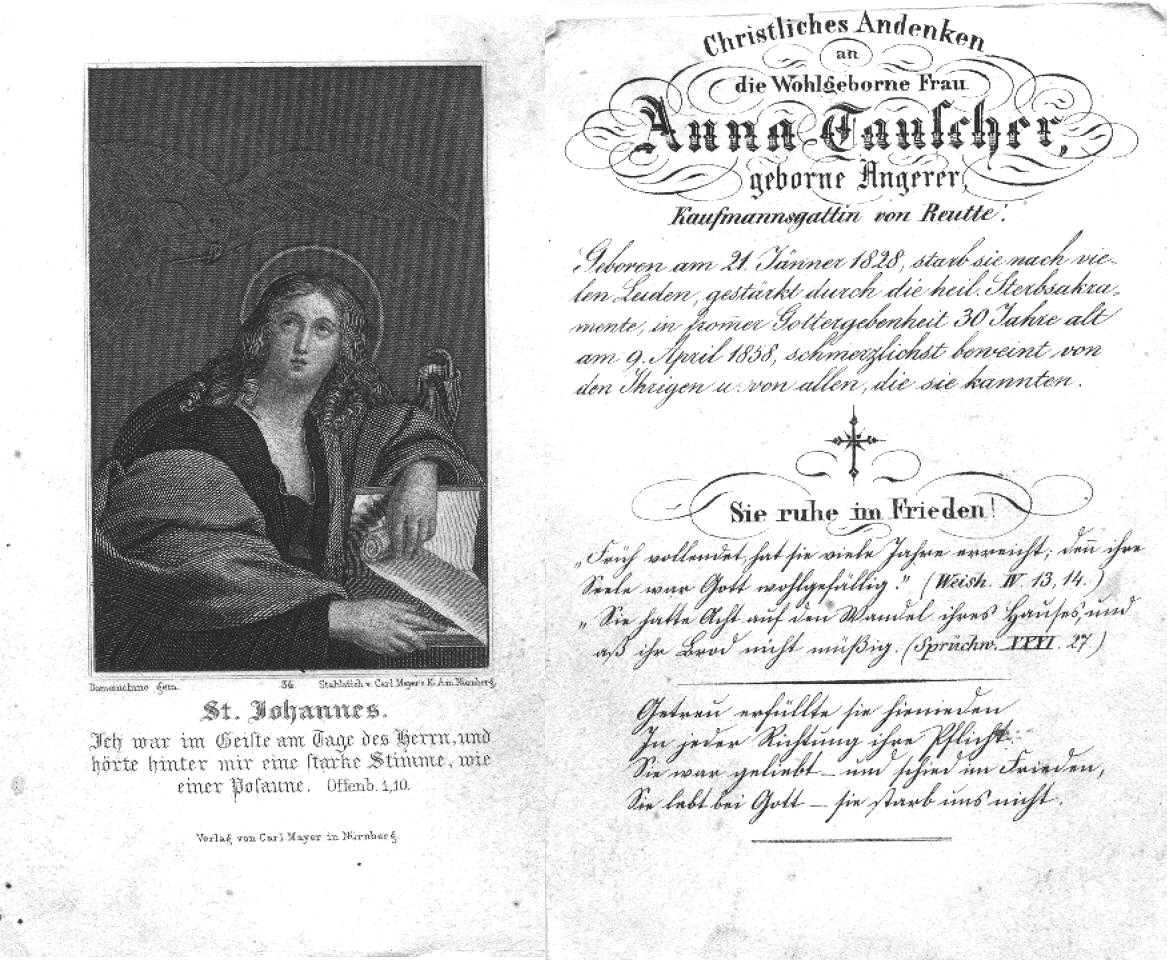 Domenichino gem.
34.
Stahlstich v. Carl Mayer's K. A. in Nürnberg.
St. Johannes.
Ich war im Geiſte am Tage des Herrn, und
hörte hinter mir eine ſtarke Stimme, wie
einer Poſaune. Offenb. 1,10.
Verlag von Carl Mayer in Nürnberg
Christliches Andenken
an
die Wohlgeborne Frau
Anna Tauſcher,
geborne Angerer,
Kaufmannsgattin von Reutte.
Geboren am 21. Jänner 1828, starb sie nach vie-
len Leiden, gestärkt durch die heil. Sterbsakra-
mente, in from̅er Gottergebenheit 30 Jahre alt
am 9. April 1858, schmerzlichst beweint von
den Ihrigen u. von allen, die sie kannten.
Sie ruhe im Frieden!
„Früh vollendet, hat sie viele Jahre erreicht; den̅ ihre
Seele war Gott wohlgefällig." (Weish. IV. 13, 14.)
„Sie hatte Acht auf den Wandel ihres Hauses, und
aß ihr Brod nicht müßig. (Sprüchw. XXXI. 27.)
Getreu erfüllte sie hienieden
In jeder Richtung ihre Pflicht.
Sie war geliebt — und schied im Frieden,
Sie lebt bei Gott — sie starb uns nicht.